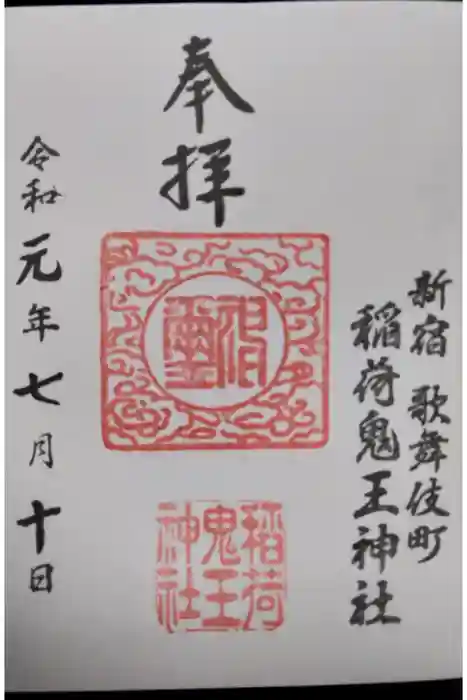 新宿 歌舞伎町
稲荷鬼王神社
奉拝
稲荷
鬼王
神社
令和元年七月十日